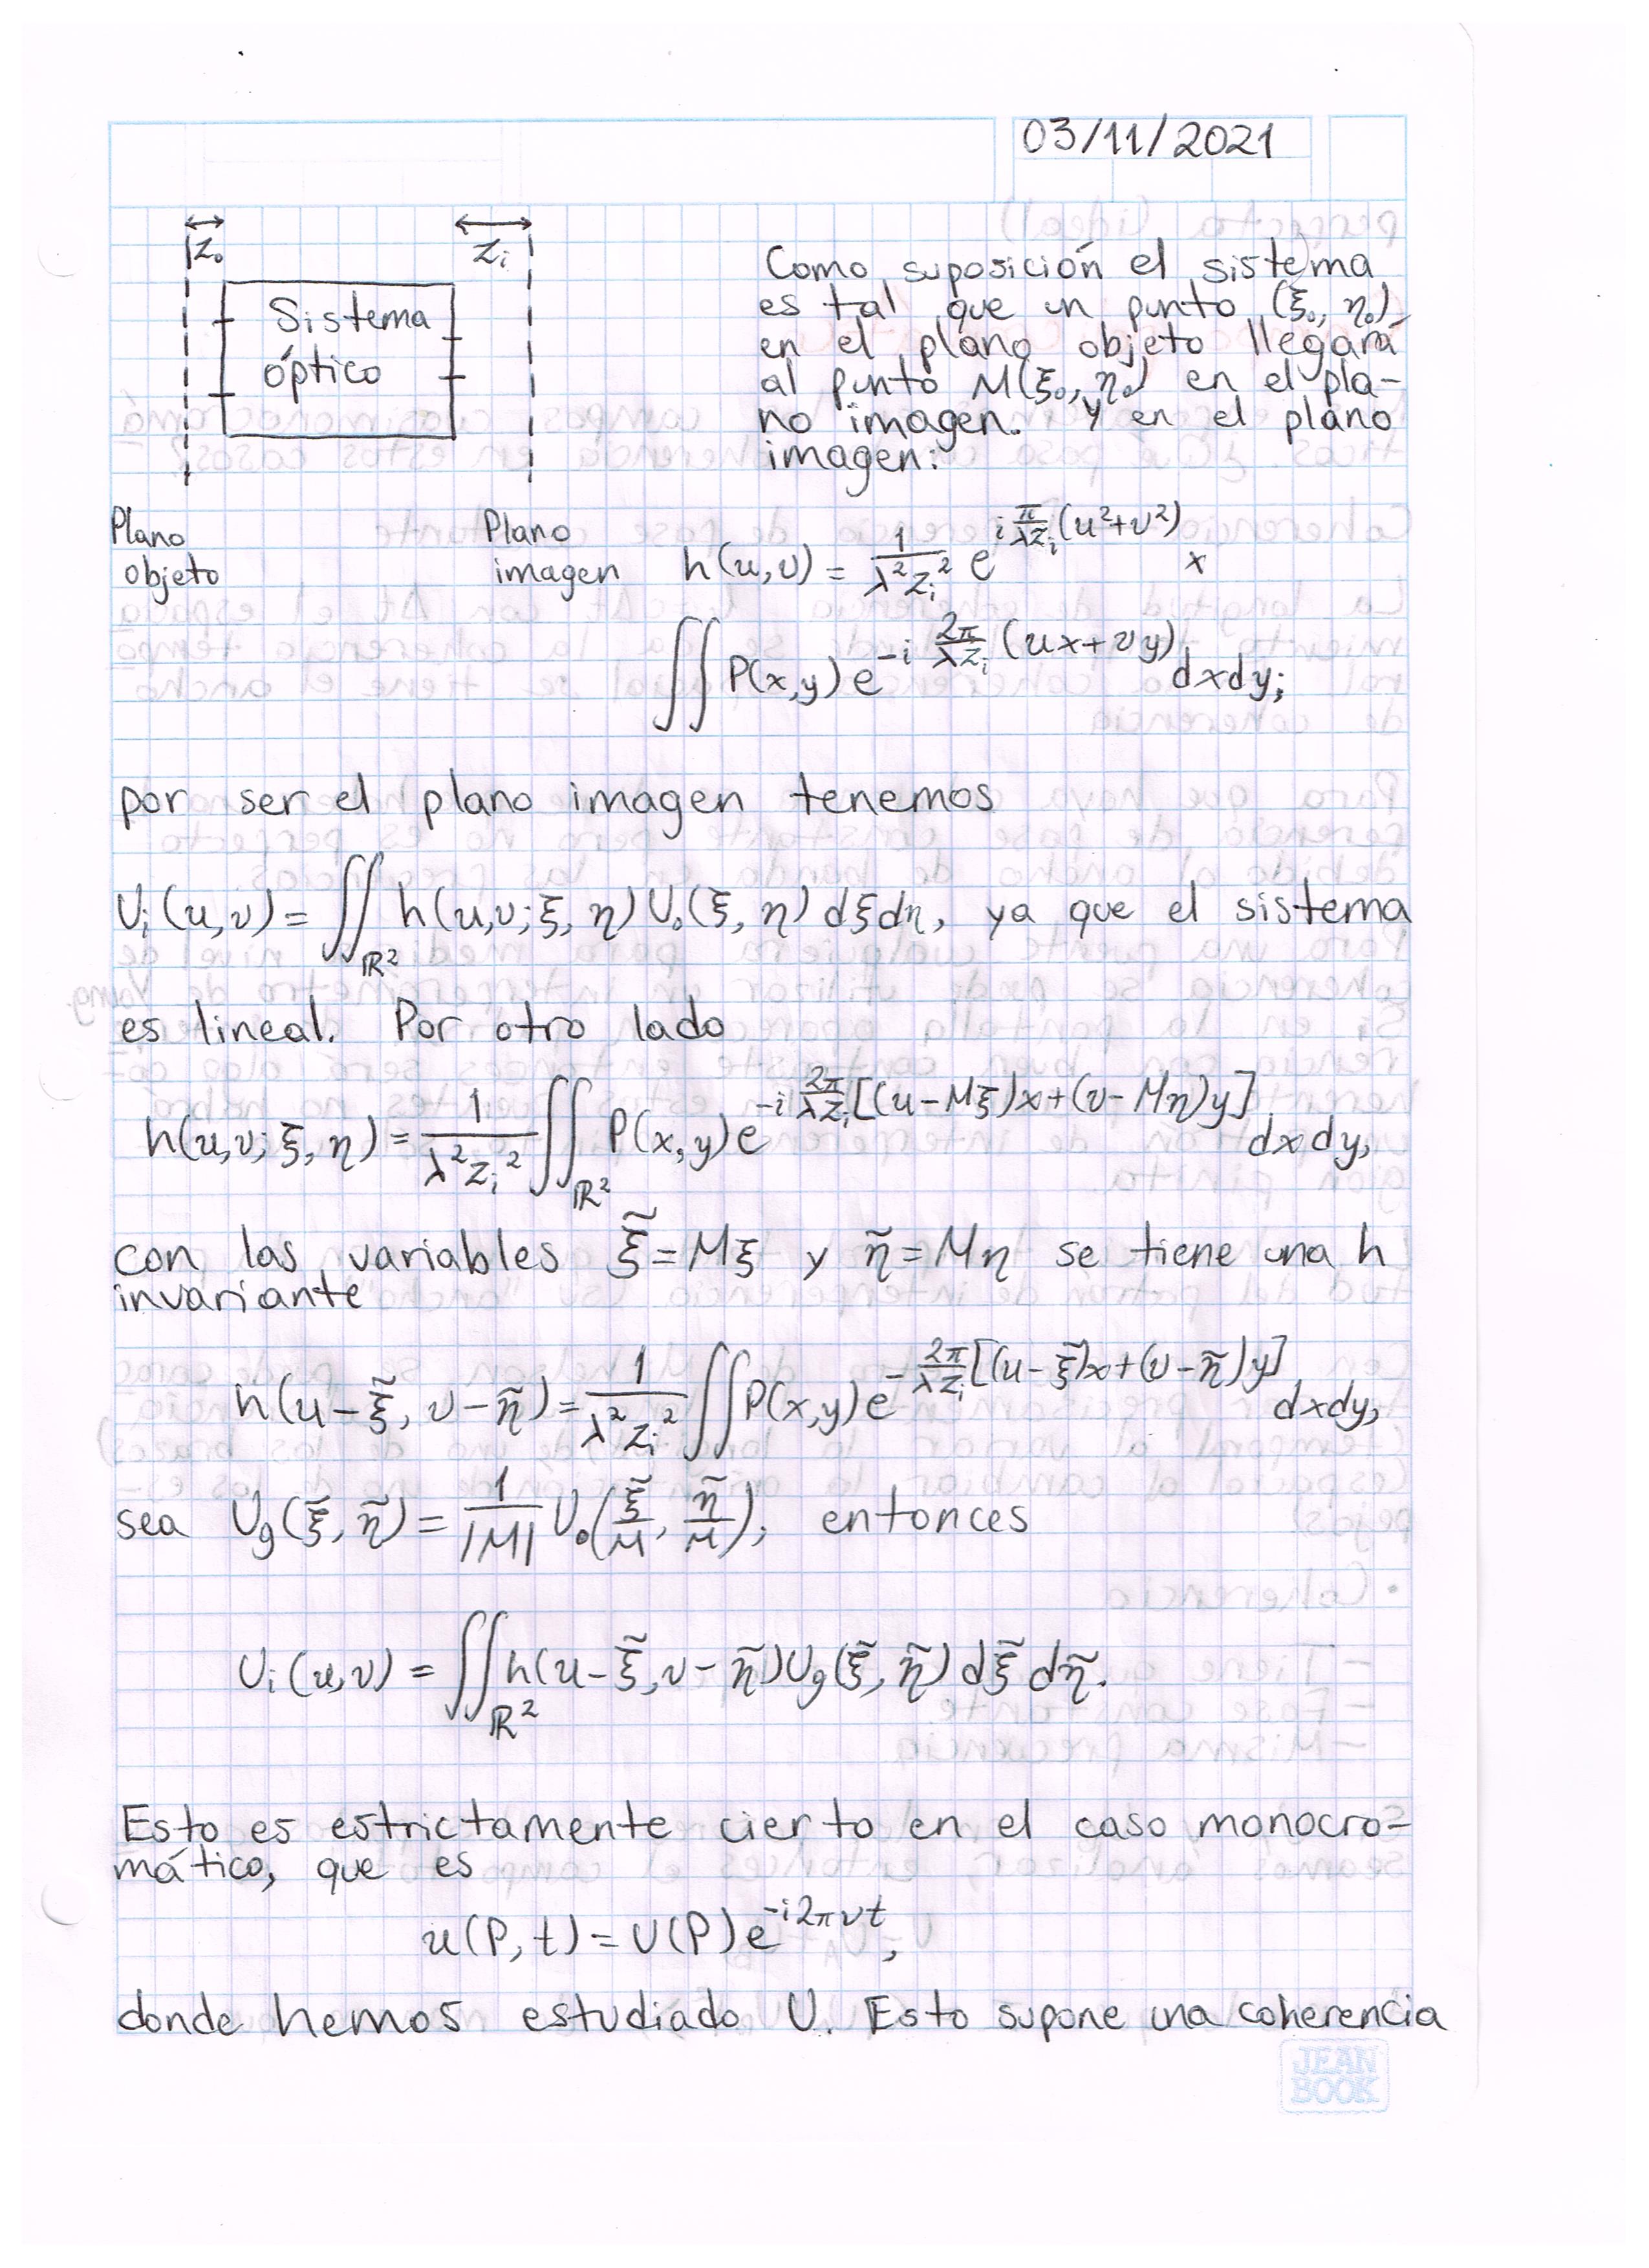 03/11/2021
z₀
zᵢ
Sistema
óptico
Como suposición el sistema
es tal que un punto (ξ₀, η₀)
en el plano objeto llegará
al punto M(ξ₀, η₀) en el pla-
no imagen. Y en el plano
imagen:
Plano
objeto
Plano
imagen
h(u,v) = 1/(λ²zᵢ²) e^{i π/(λzᵢ) (u²+v²)} x
∬ P(x,y) e^{-i 2π/(λzᵢ) (ux+vy)} dxdy;
por ser el plano imagen tenemos
Uᵢ(u,v) = ∬_{ℝ²} h(u,v; ξ, η) U₀(ξ, η) dξdη, ya que el sistema
es lineal. Por otro lado
h(u,v; ξ, η) = 1/(λ²zᵢ²) ∬_{ℝ²} P(x,y) e^{-i 2π/(λzᵢ) [(u-Mξ)x+(v-Mη)y]} dxdy,
con las variables ξ̃ = Mξ y η̃ = Mη se tiene una h
invariante
h(u-ξ̃, v-η̃) = 1/(λ²zᵢ²) ∬ P(x,y) e^{- 2π/(λzᵢ) [(u-ξ̃)x+(v-η̃)y]} dxdy,
sea U_g(ξ̃, η̃) = 1/|M| U₀(ξ̃/M, η̃/M); entonces
Uᵢ(u,v) = ∬_{ℝ²} h(u-ξ̃, v-η̃) U_g(ξ̃, η̃) dξ̃ dη̃.
Esto es estrictamente cierto en el caso monocro-
mático, que es
u(P,t) = U(P) e^{-i2πνt},
donde hemos estudiado U. Esto supone una coherencia
JEAN
BOOK